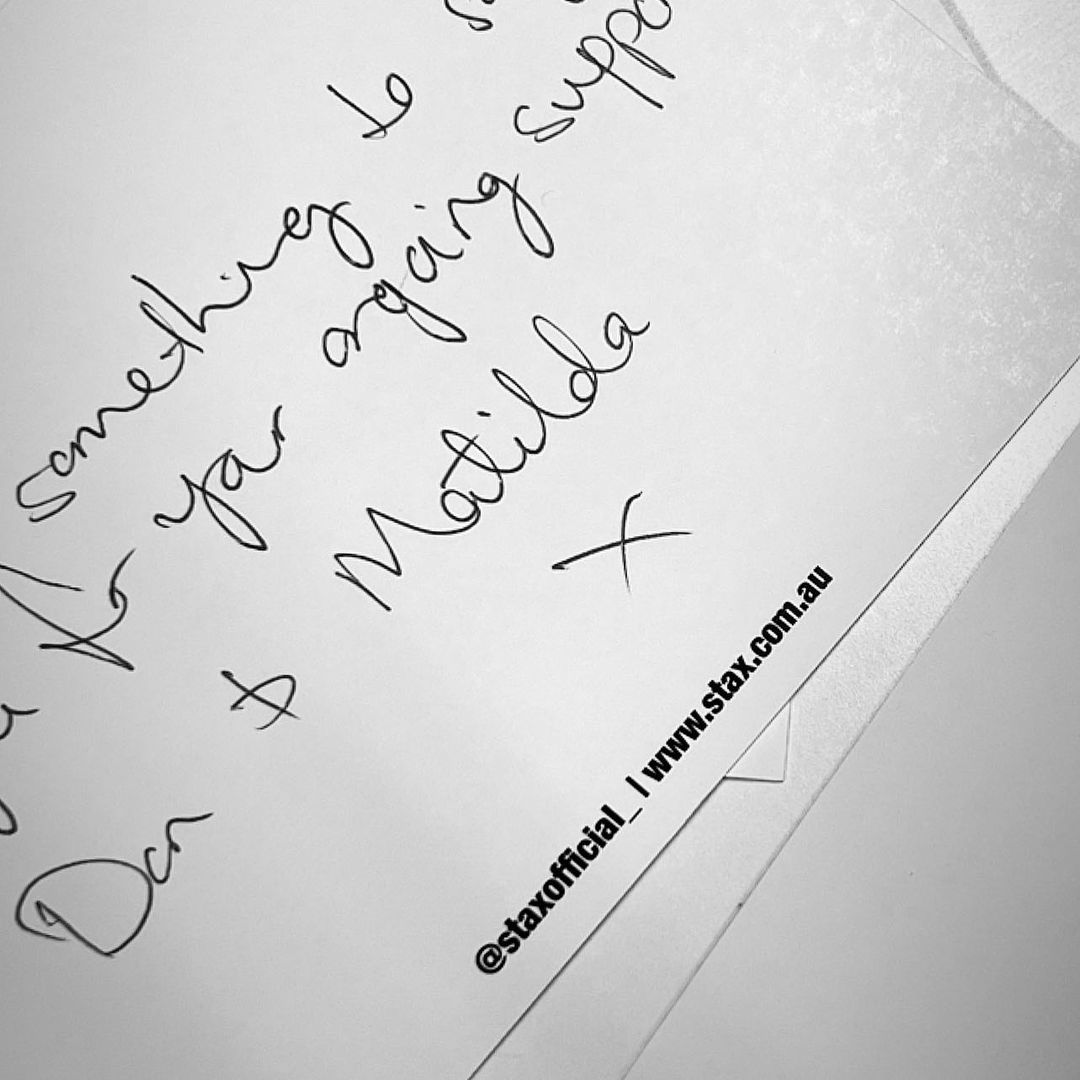 something to
for your ongoing suppo
Dan & Matilda
X
@staxofficial_ | www.stax.com.au